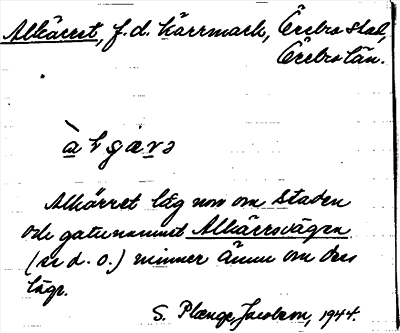 Alkärret, f. d. kärrmark, Örebro stad,
Örebro län.
Alkärret låg norr om staden
och gatunamnet Alkärrsvägen
(se d. o.) minner ännu om dess
läge.
S. Plænge Jacobson, 1944.